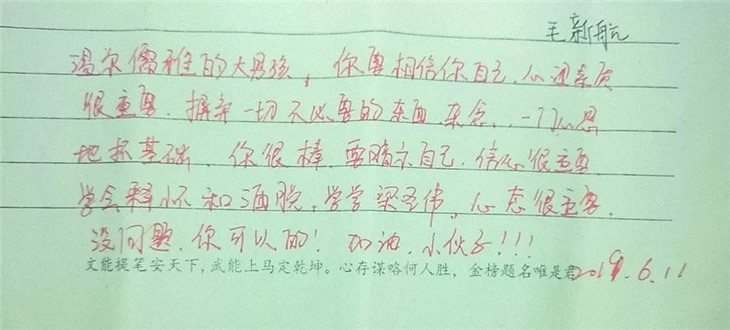 毛新航
温尔儒雅的大男孩，你要相信你自己，心理素质
很重要，摒弃一切不必要的东西杂念，一门心思
地抓基础，你很棒，要暗示自己，信心很重要
学会释怀和洒脱，学学梁圣伟，心态很重要，
没问题，你可以的！加油，小伙子！！！
文能提笔安天下，武能上马定乾坤。心存谋略何人胜，金榜题名唯是君 2019.6.11